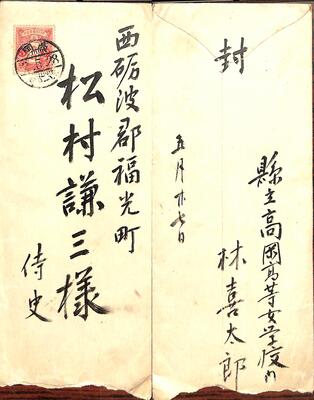 西砺波郡福光町
松村謙三様
侍史
封
五月廿七日
縣立高岡高等女学校内
林喜太郎